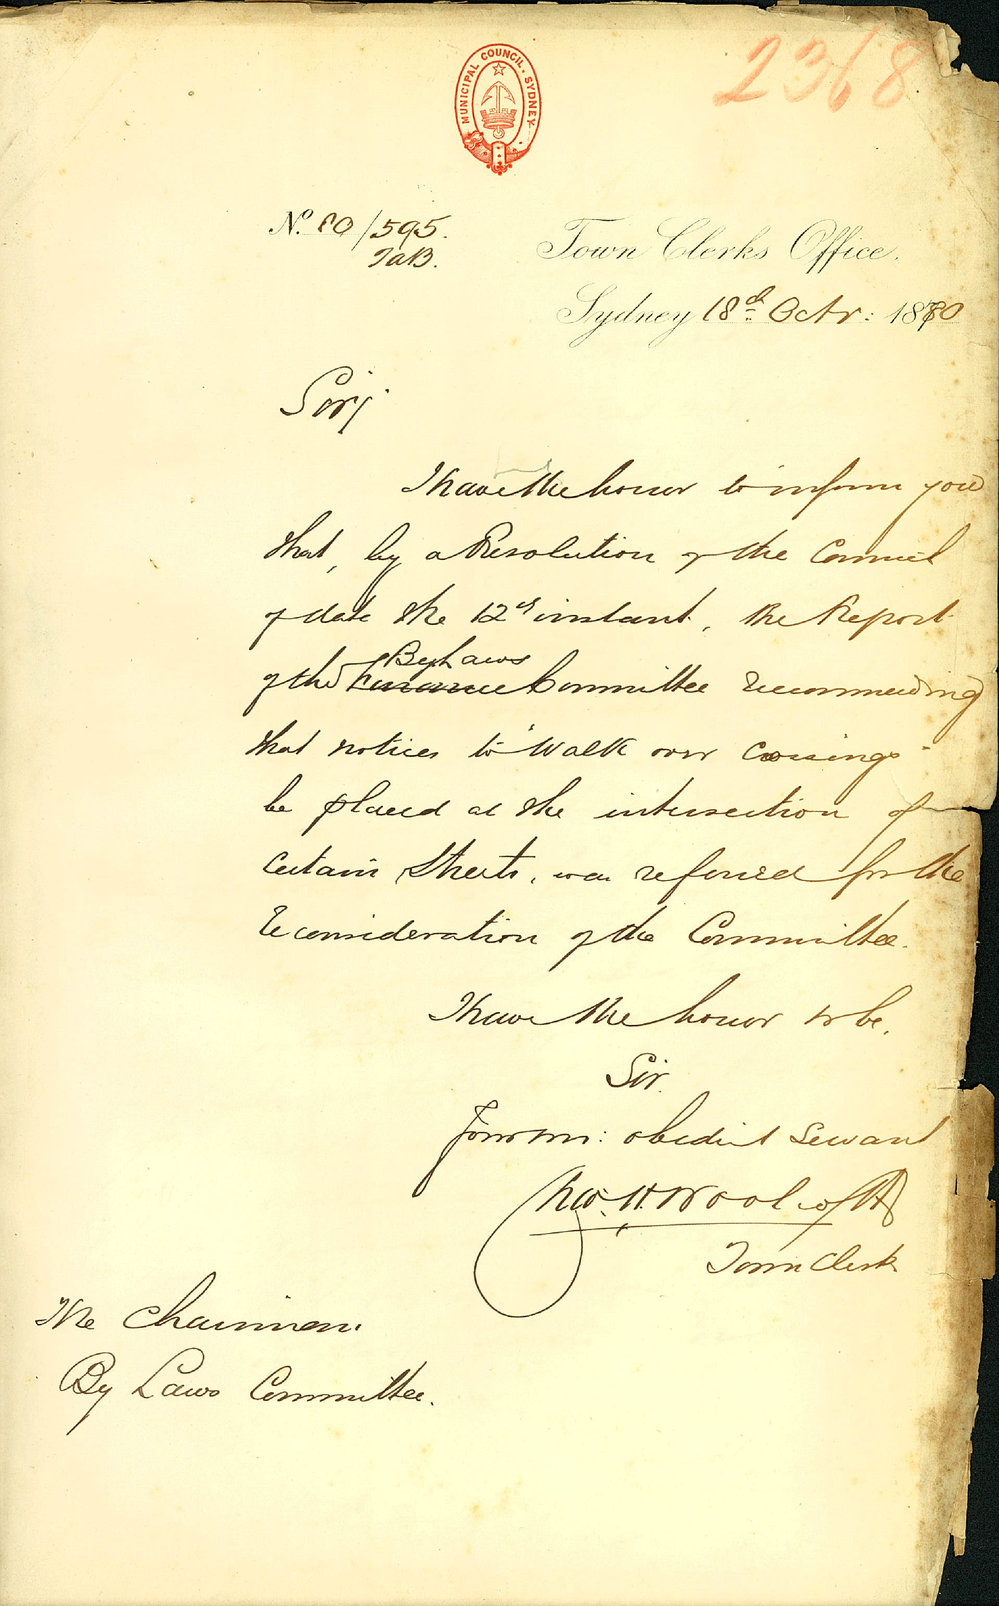 MUNICIPAL COUNCIL. SYDNEY.
2368
No. 80/595.
Town Clerks Office.
Sydney 18th Octr: 1880
Sir,
I have the honor to inform you
that, by a Resolution of the Council
of date the 12th instant, the Report
of the Finance By Laws Committee recommending
that notices to "Walk over crossings"
be placed at the intersection of
certain Streets, was referred for the
reconsideration of the Committee.
I have the honor to be,
Sir.
Your mo: obedient Servant
Chas. H. Woolcott
Town Clerk
The Chairman
By Laws Committee.